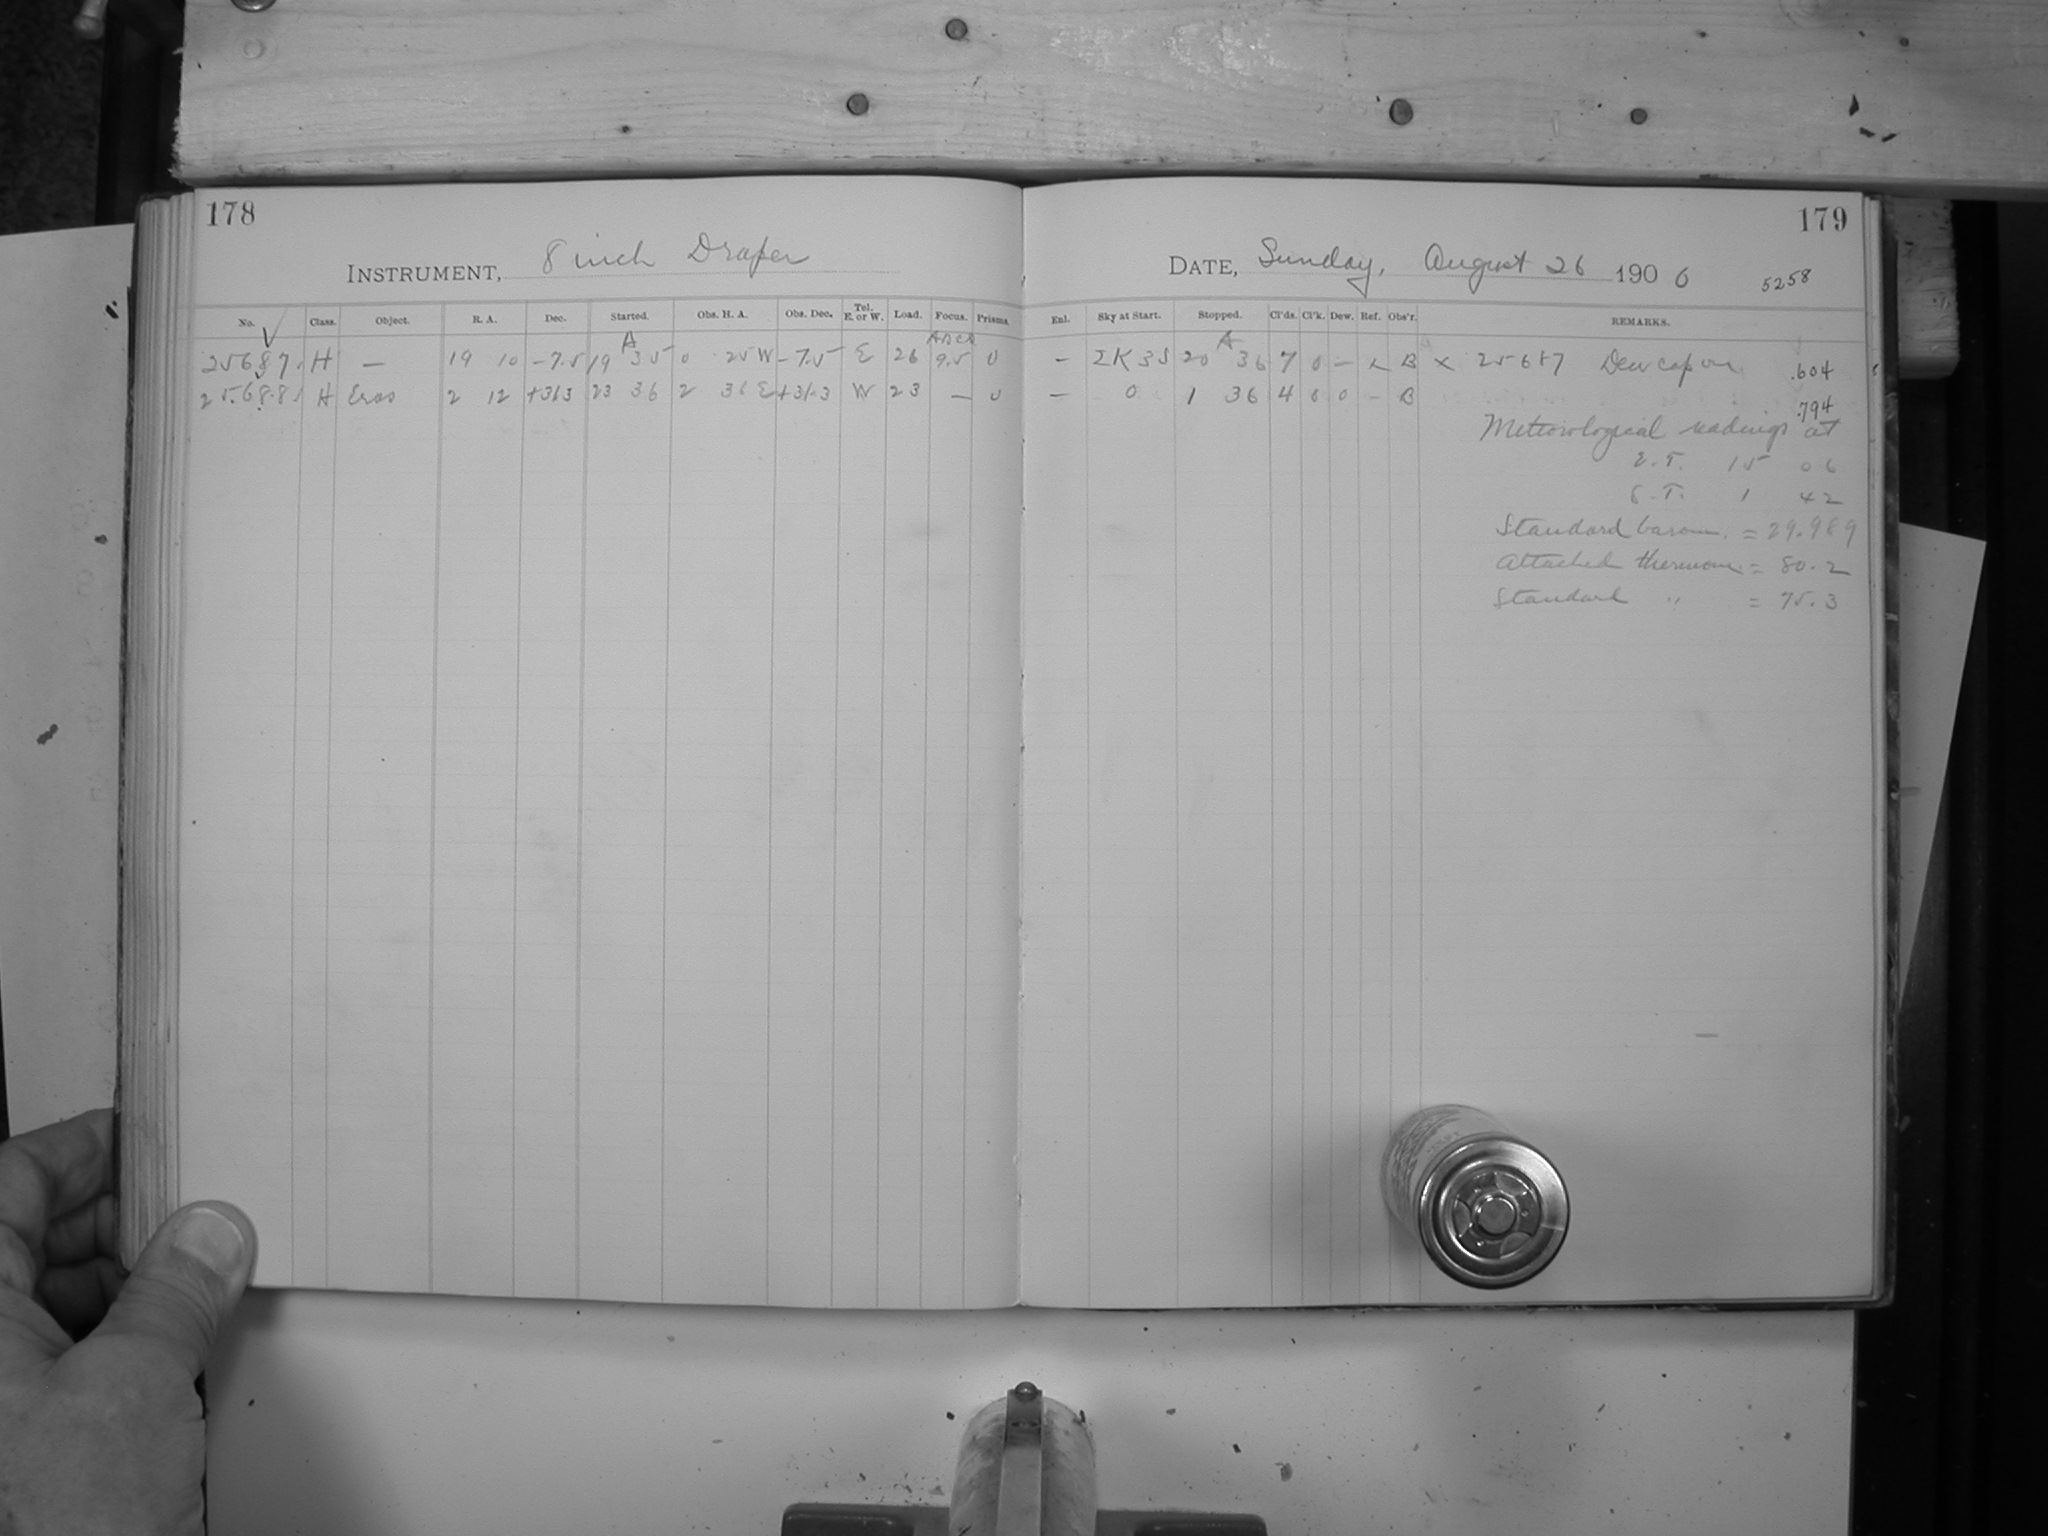 178
179
INSTRUMENT, 8 inch Draper
DATE, Sunday, August 26 1906
5258
No. Class. Object. R. A. Dec. Started. Obs. H. A. Obs. Dec. Tel. E. or W. Load. Focus. Prisms. Enl. Sky at Start. Stopped. Cl'ds. Cl'k. Dew. Ref. Obs'r. REMARKS.
25687 H — 19 10 -7.5 19 35 0 25 W -7.5 E 26 9.5 0 — ΣK3S 20 36 7 0 — B × 25687 Dew cap on .604
25688 H Eros 2 12 +31.3 23 36 2 36 E +31.3 W 23 — 0 — 0 1 36 4 0 0 - B .794
Meteorological readings at
E.T. 15 06
S.T. 1 42
Standard barom. = 29.989
Attached thermom = 80.2
Standard " = 75.3